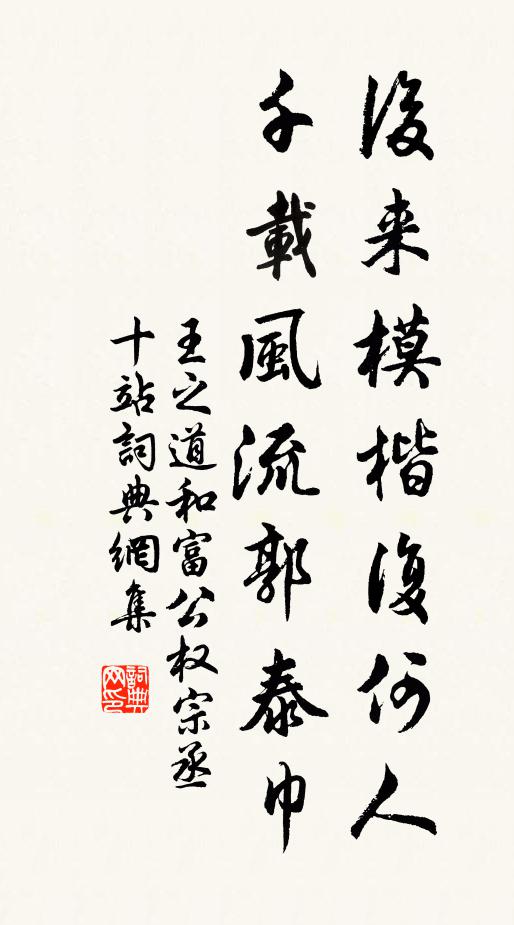 後来模楷復何人
千載風流郭泰巾
王之道和富公权宗丞
十站詞典網集
詞典网印